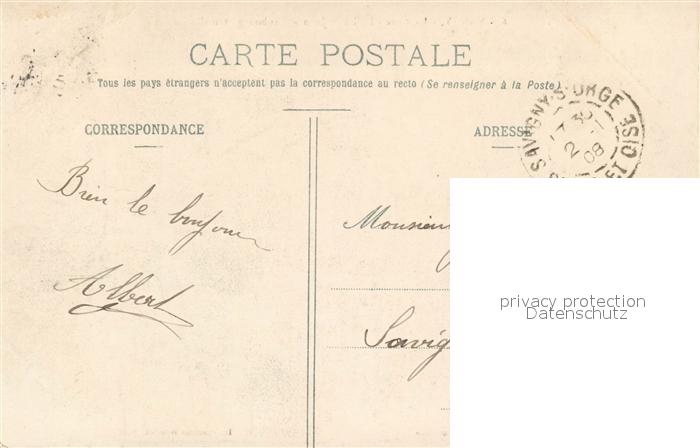 CARTE POSTALE
Tous les pays étrangers n'acceptent pas la correspondance au recto (Se renseigner à la Poste)
CORRESPONDANCE
ADRESSE
SAVIGNY-S-ORGE
OISE
2
08
Bien le bonjour
Albert
Monsieur
Savig
privacy protection
Datenschutz